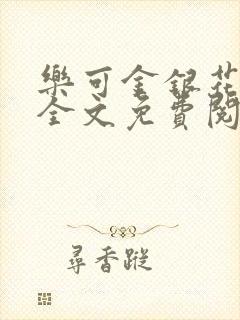 樂可金銀花
全文免費閱
尋香蹤